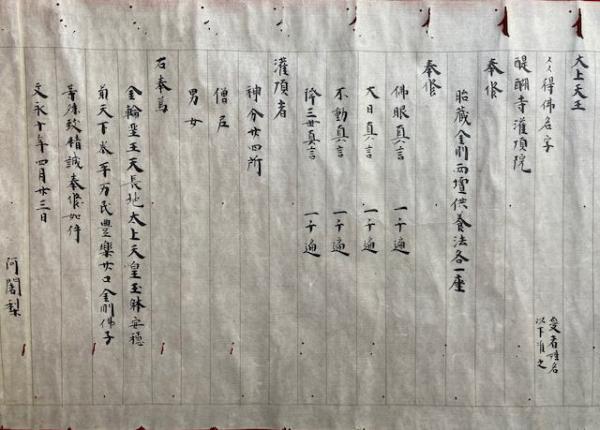 大上天王
〻〻得佛名字
受者姓名
以下准之
醍醐寺灌頂院
奉修
胎蔵金剛両壇供養法各一座
奉修
佛眼真言 一千遍
大日真言 一千遍
不動真言 一千遍
降三世真言 一千遍
灌頂者
神分廿四所
僧尼
男女
右奉為
金輪聖王天長地太上天皇玉躰安穏
前天下太平万民豊樂廿口金剛佛子
等殊致精誠奉修如件
文永十年四月廿三日
阿闍梨